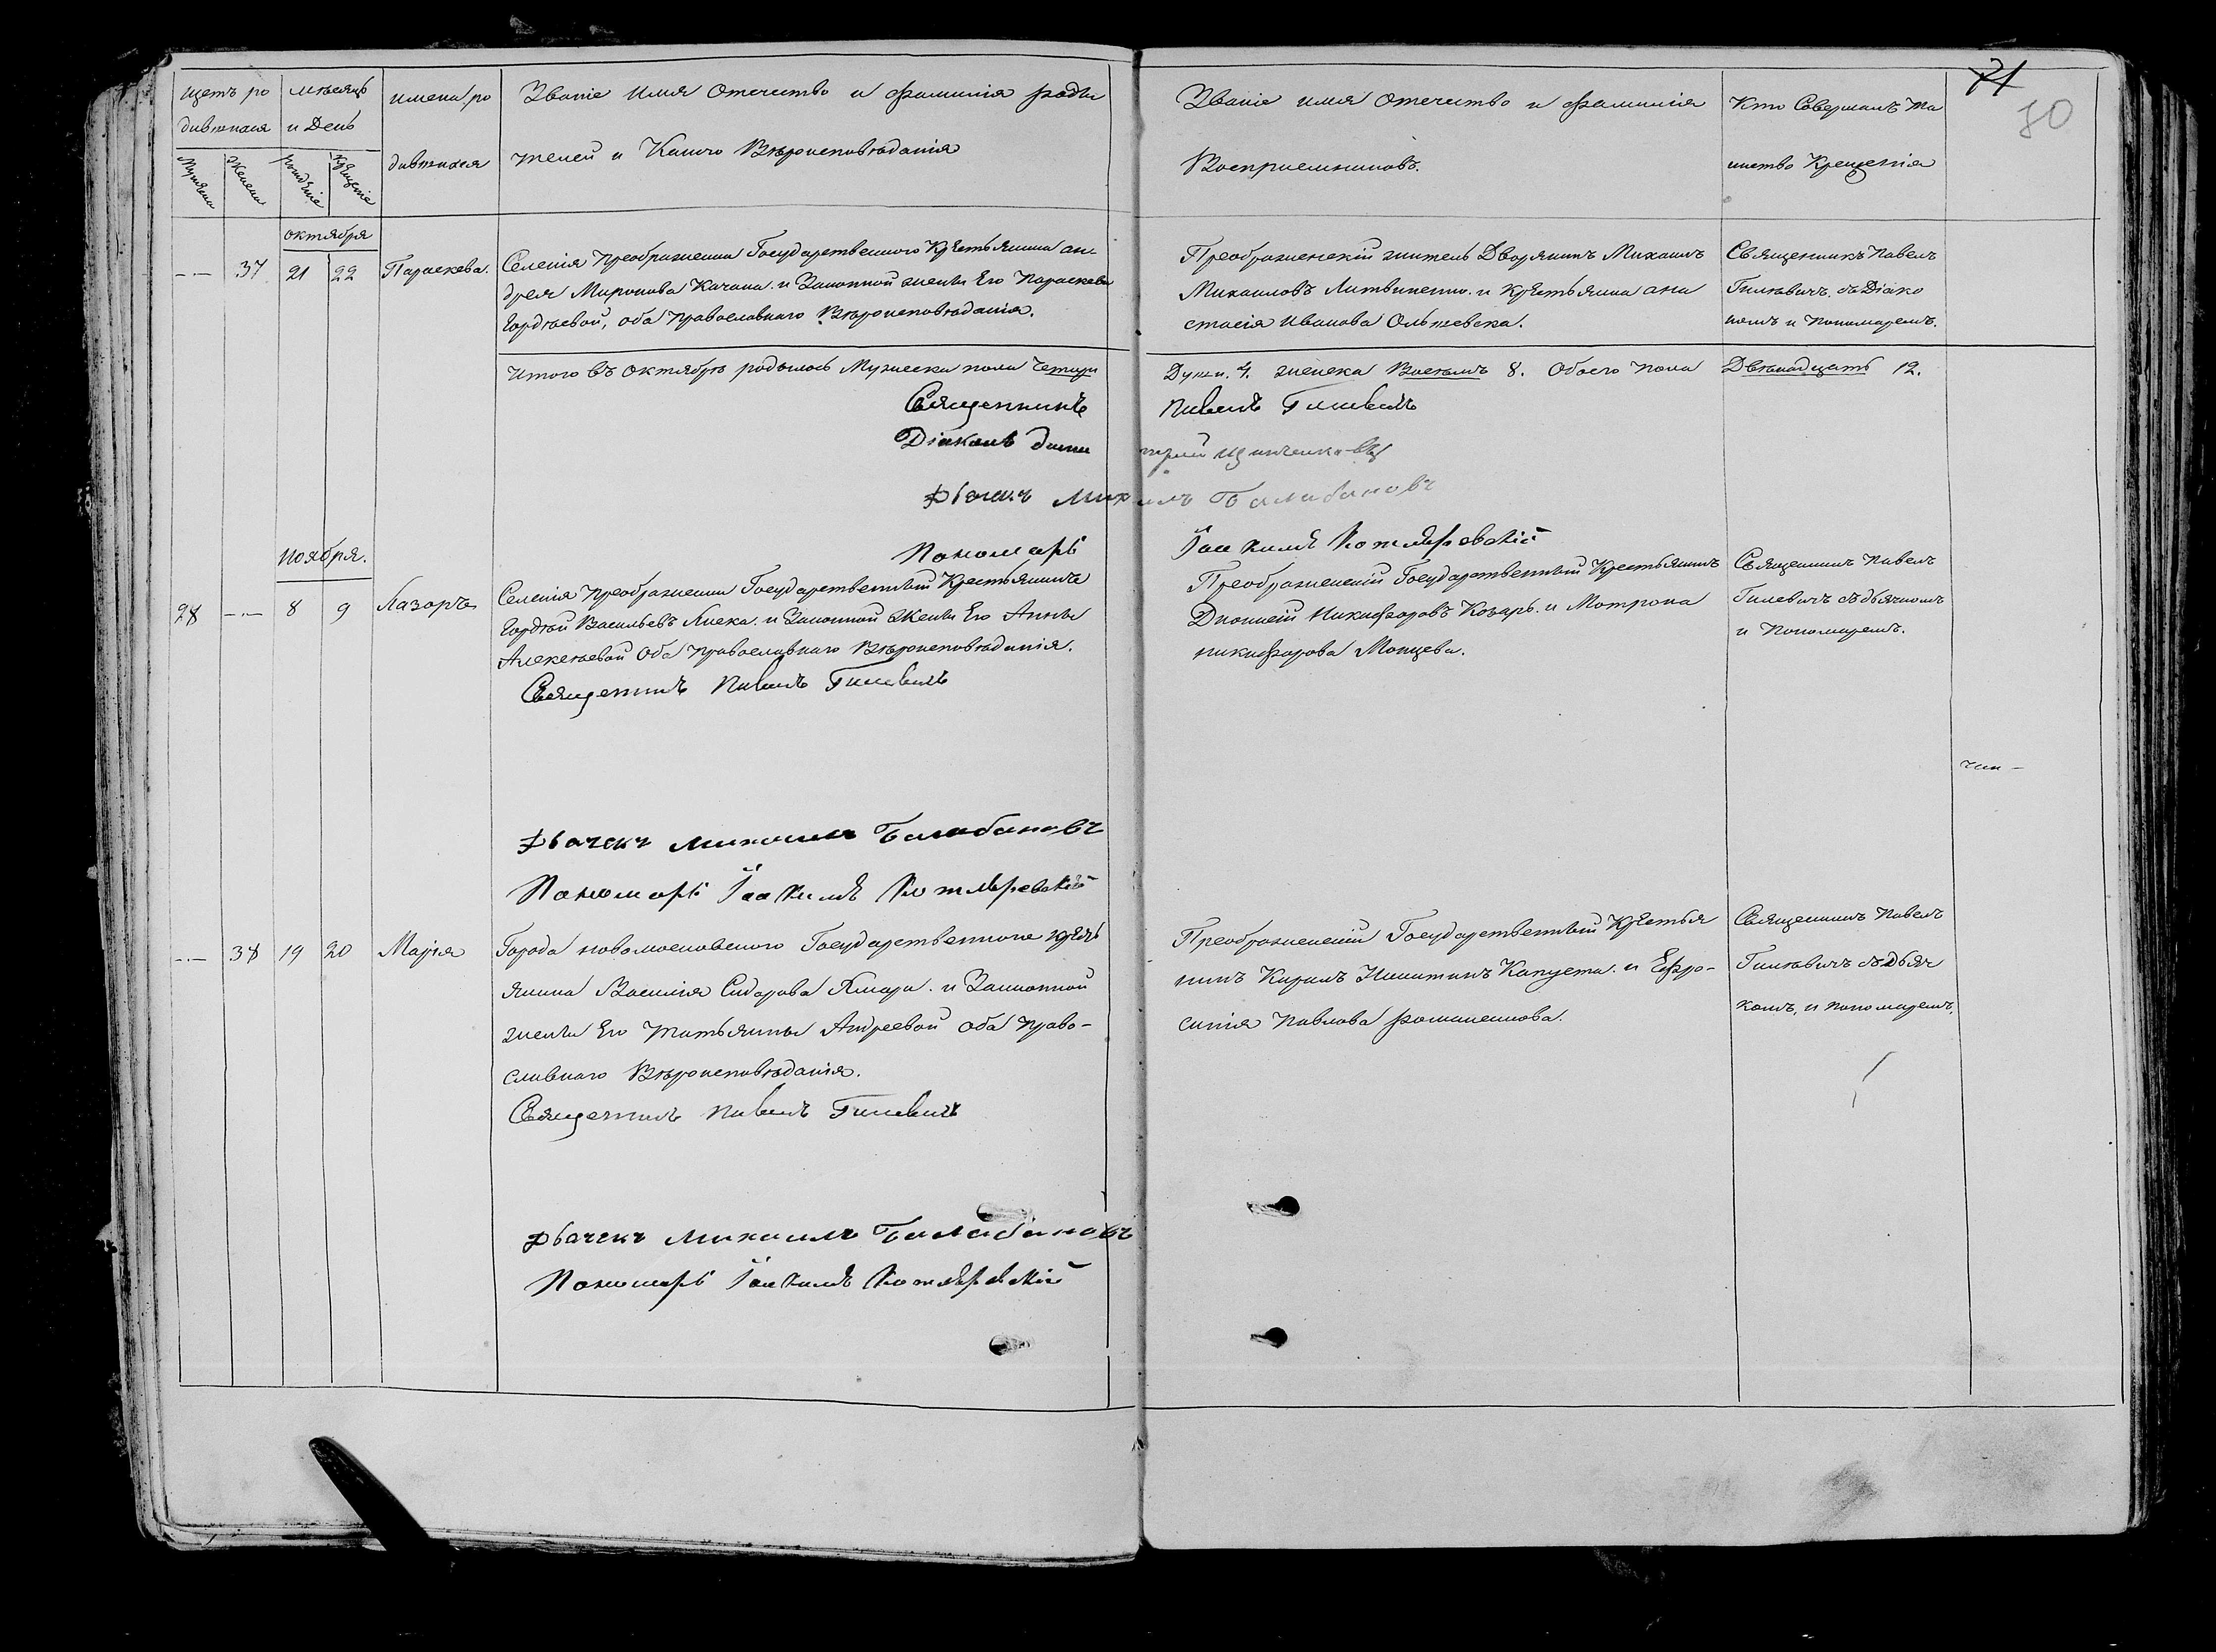 71
70
щетъ ро
дившихся
мѣсяцъ
и День
имена ро
дившихся
Званіе Имя Отечество и фамилія роди
телей и Какого Вѣроисповѣданія
Званіе имя Отечество и фамилія
Воспріемниковъ.
Кто Совершалъ та
инство Крещенія
Мужеска
Женска
рожденіе
крещеніе
октября
-·- 37 21 22 Параскева.
Селенія Преображенки Государственного Крестьянина ан-
дрея Миронова Качана. и Законной жены Его Параскевы
Гордѣевой, оба Православнаго Вѣроисповѣданія.
Преображенскій житель Дворянинъ Михаилъ
Михаиловъ Литвиненко. и Крестьянка ана
стасія Иванова Ольшевска.
Священникъ Павелъ
Гилевичъ. съ Діако
номъ и Пономаремъ.
Итого въ Октябрѣ родилось Мужеска пола Четыри
Душъ. 4. женска Восемъ 8. Обоего пола Двѣнадцать 12.
Священникъ Павелъ Гилевичъ
Діаконъ дими трій
Дьячекъ Михаилъ Балабановъ
Пономарь Іоакимъ Котляревскій
Ноября.
28 -·- 8 9 Лазоръ
Селенія Преображенки Государственный Крестьянинъ
Гордѣй Васильевъ и Законной Жены Его Анны
Алексѣевой Оба Православнаго Вѣроисповѣданія.
Преображенскій Государственный Крестьянинъ
Діонисій Никифоровъ Козарь. и Мотрона
никифорова
Священникъ Павелъ
Гилевичъ съ дьячкомъ
и Пономаремъ.
Священникъ Павелъ Гилевичъ
Дьячекъ Михаилъ Балабановъ
Пономарь Іоакимъ Котляревскій
-·- 38 19 20 Марія
Города новомосковского Государственного крестъ
янина Василія Сидорова и Законной
жены Его Татьянны Андреевой Оба Право-
славнаго Вѣроисповѣданія.
Преображенскій Государственный Крестья
нинъ Кирилъ Никитинъ Капуста. и Ефро-
синія Павлова романенкова.
Священникъ Павелъ
Гилевичъ съ дьяч
комъ, и пономаремъ,
Священникъ Павелъ Гилевичъ
Дьячекъ Михаилъ Балабановъ
Пономарь Іоакимъ Котляревскій